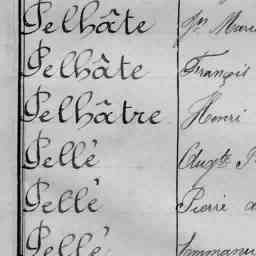 Pelhâte Jn Marie
Pelhâte François
Pelhâtre Henri
Pellé Augte
Pellé Pierre
Pellé Emmanuel